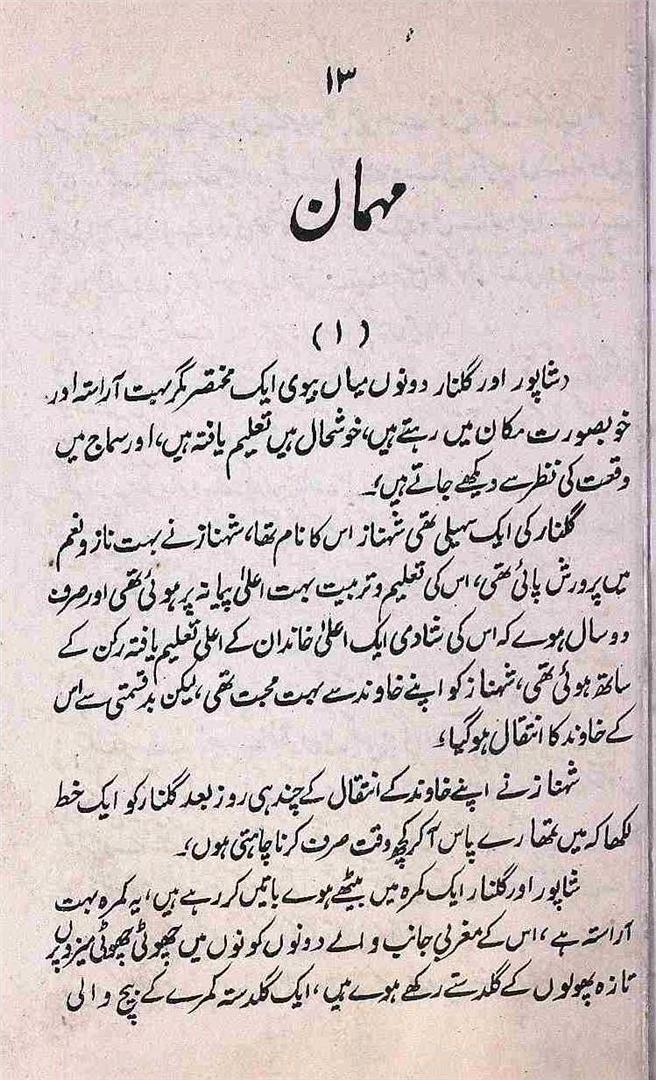 ۱۳
مہمان
(۱)
شاپور اور گلنار دونوں میاں بیوی ایک مختصر مگر بہت آراستہ اور
خوبصورت مکان میں رہتے ہیں، خوشحال ہیں تعلیم یافتہ ہیں، اور سماج میں
وقعت کی نظر سے دیکھے جاتے ہیں،۔
گلنار کی ایک سہیلی تھی شہناز اس کا نام تھا، شہناز نے بہت ناز و نعم
میں پرورش پائی تھی، اس کی تعلیم و تربیت بہت اعلیٰ پیمانہ پر ہوئی تھی اور صرف
دو سال ہوے کہ اس کی شادی ایک اعلیٰ خاندان کے اعلیٰ تعلیم یافتہ رکن کے
ساتھ ہوئی تھی، شہناز کو اپنے خاوند سے بہت محبت تھی، لیکن بدقسمتی سے اس
کے خاوند کا انتقال ہوگیا،
شہناز نے اپنے خاوند کے انتقال کے چند ہی روز بعد گلنار کو ایک خط
لکھا کہ میں تمھارے پاس آکر کچھ وقت صرف کرنا چاہتی ہوں،۔
شاپور اور گلنار ایک کمرہ میں بیٹھے ہوے باتیں کررہے ہیں، یہ کمرہ بہت
آراستہ ہے، اس کے مغربی جانب والے دونوں کونوں میں چھوٹی چھوٹی میزوں پر
تازہ پھولوں کے گلدستے رکھے ہوے ہیں، ایک گلدستہ کمرے کے بیچ والی